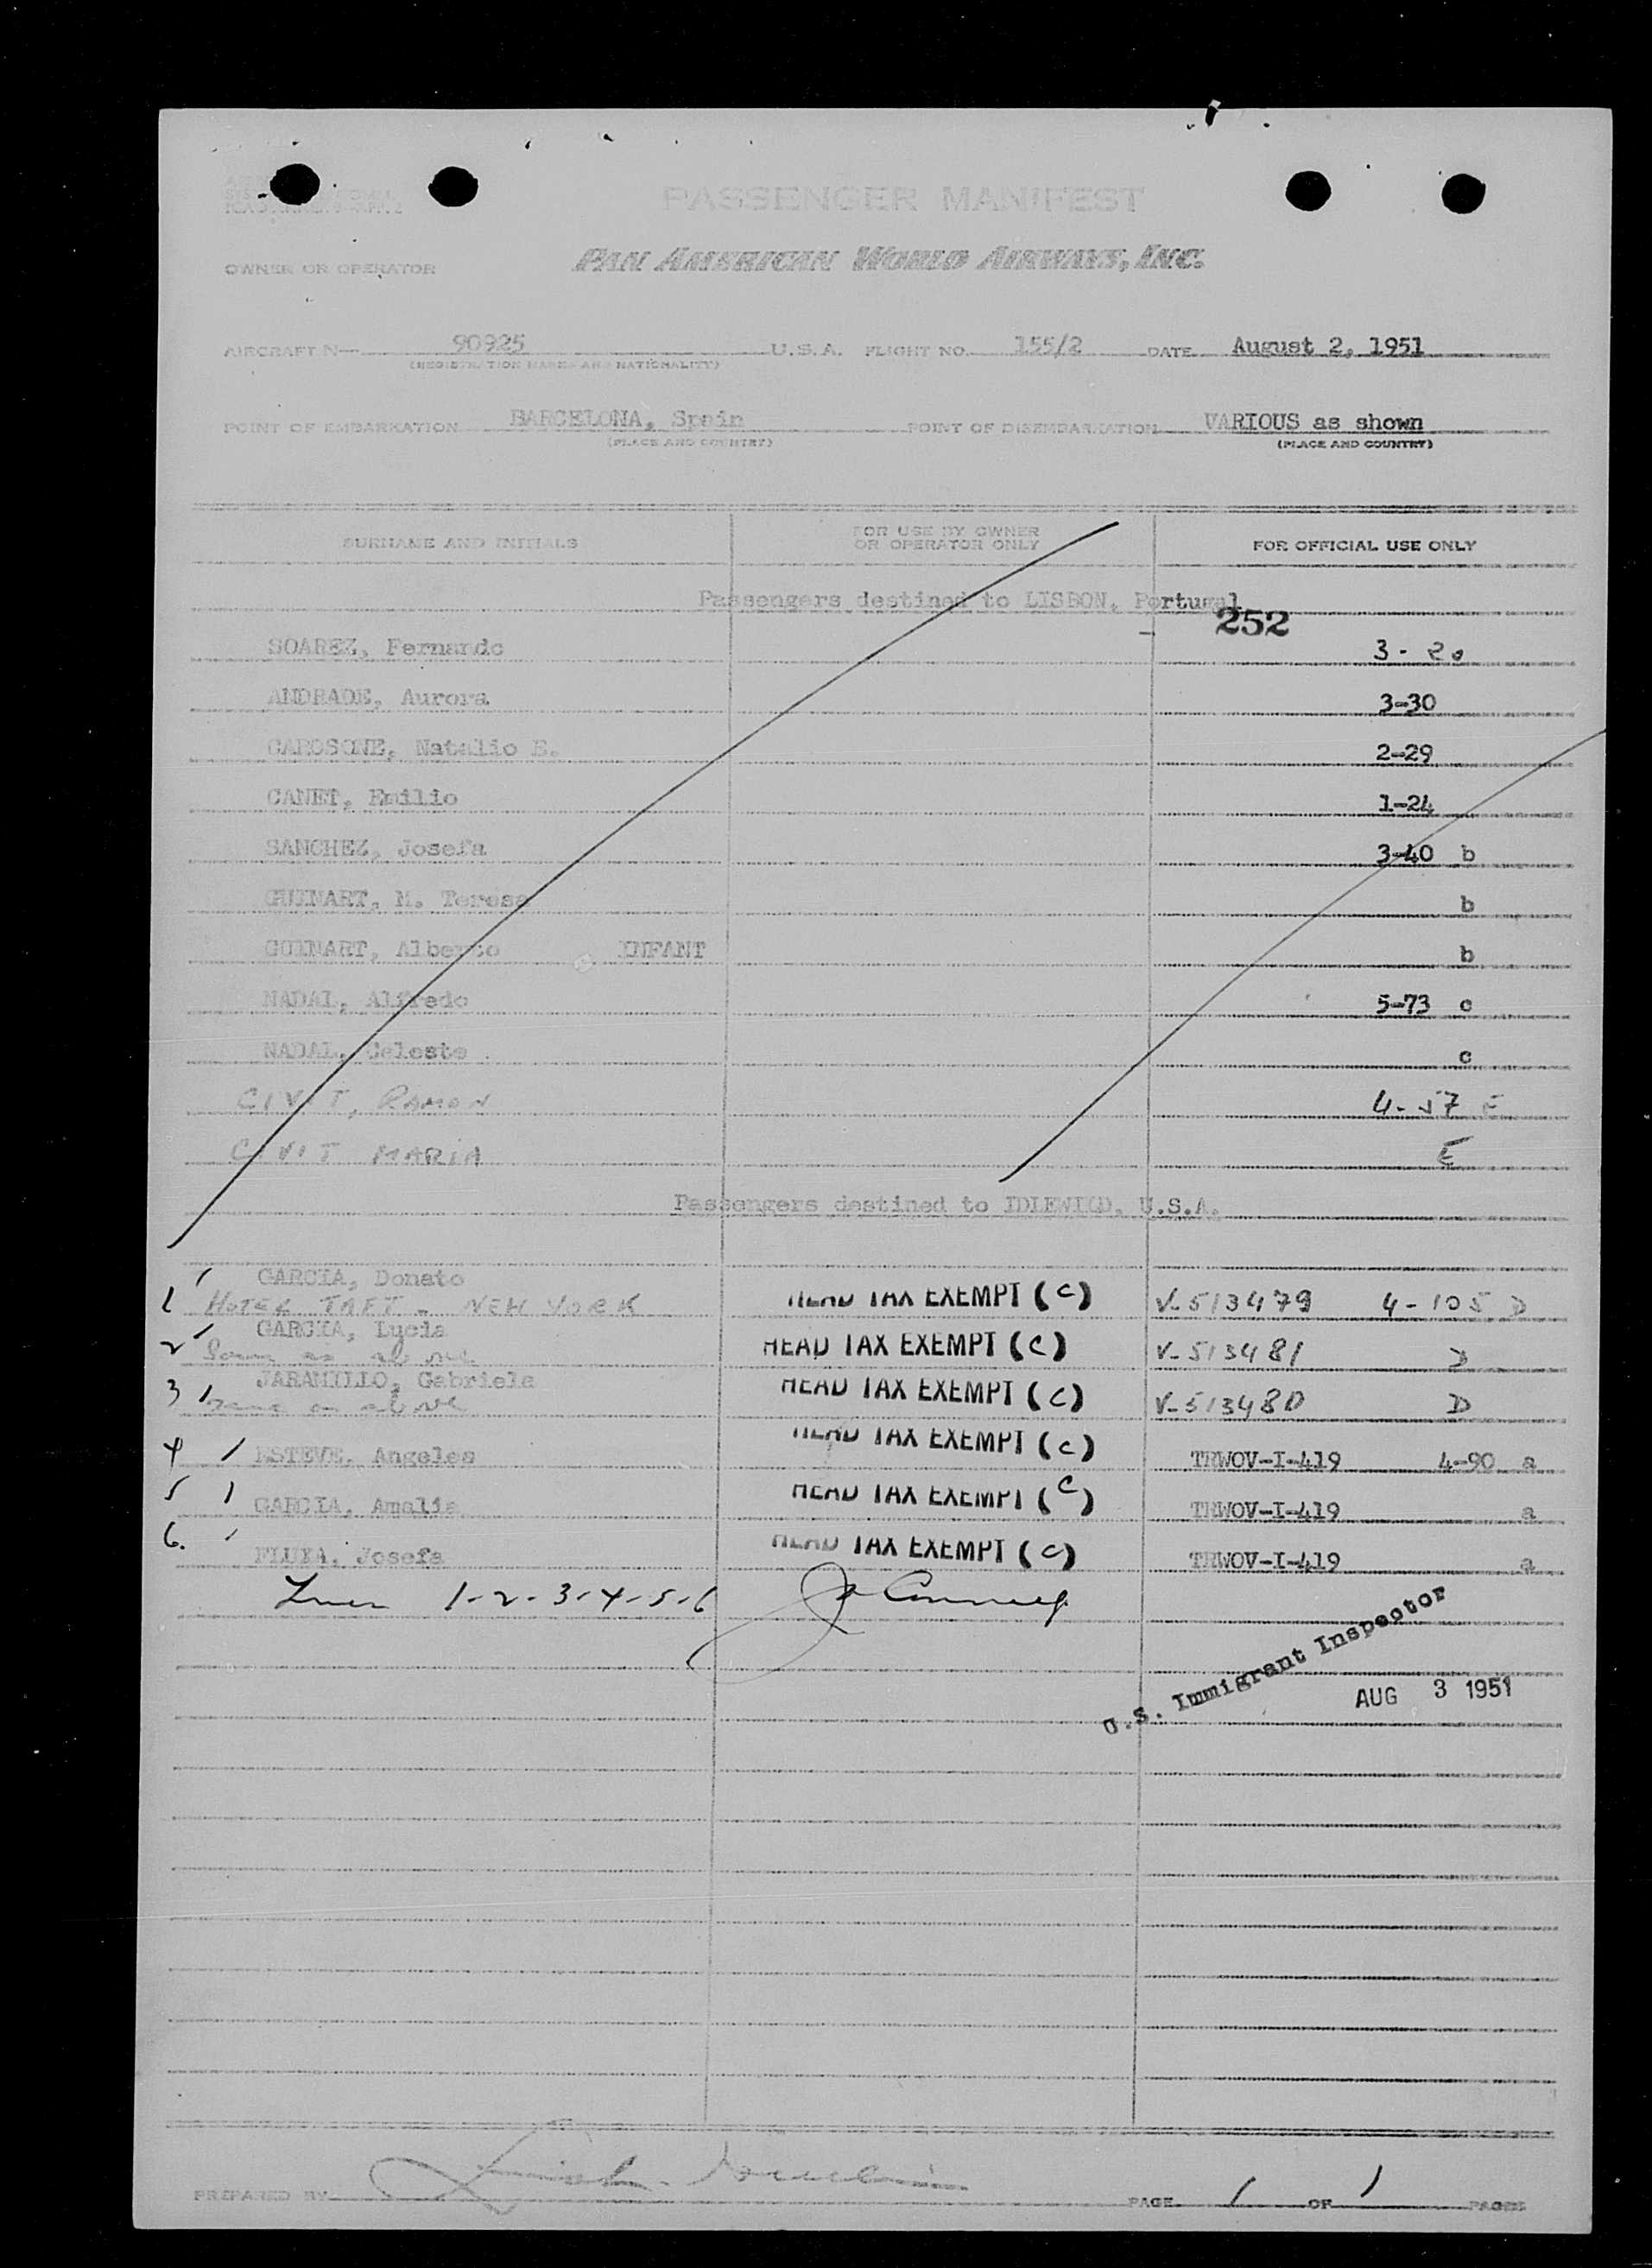 PASSENGER MANIFEST
OWNER OR OPERATOR PAN AMERICAN WORLD AIRWAYS, INC.
AIRCRAFT N— 90925 U.S.A. FLIGHT NO. 155/2 DATE August 2, 1951
(REGISTRATION MARKS AND NATIONALITY)
POINT OF EMBARKATION BARCELONA, Spain POINT OF DISEMBARKATION VARIOUS as shown
(PLACE AND COUNTRY) (PLACE AND COUNTRY)
SURNAME AND INITIALS FOR USE BY OWNER OR OPERATOR ONLY FOR OFFICIAL USE ONLY
Passengers destined to LISBON, Portugal
252
SOAREZ, Fernando 3-20
ANDRADE, Aurora 3-30
CAROSONE, Natalio E. 2-29
CANET, Emilio 1-24
SANCHEZ, Josefa 3-40 b
GUINART, M. Teresa b
GUINART, Alberto INFANT b
NADAL, Alfredo 5-73 c
NADAL, Celeste c
CIVIT, RAMON 4-57 E
CIVIT MARIA E
Passengers destined to IDLEWILD, U.S.A.
GARCIA, Donato
1 HOTEL TAFT - NEW YORK HEAD TAX EXEMPT (C) V-513479 4-105 D
GARCIA, Lycia
2 Same as above HEAD TAX EXEMPT (C) V-513481 D
JARAMILLO, Gabriela
3 Same as above HEAD TAX EXEMPT (C) V-513480 D
4 ESTEVE, Angeles HEAD TAX EXEMPT (C) TRWOV-I-419 4-90 a
5 GARCIA, Amalia HEAD TAX EXEMPT (C) TRWOV-I-419 a
6. FLUXA, Josefa HEAD TAX EXEMPT (C) TRWOV-I-419 a
1-2-3-4-5-6
U.S. Immigrant Inspector
AUG 3 1951
PREPARED BY PAGE 1 OF 1 PAGES